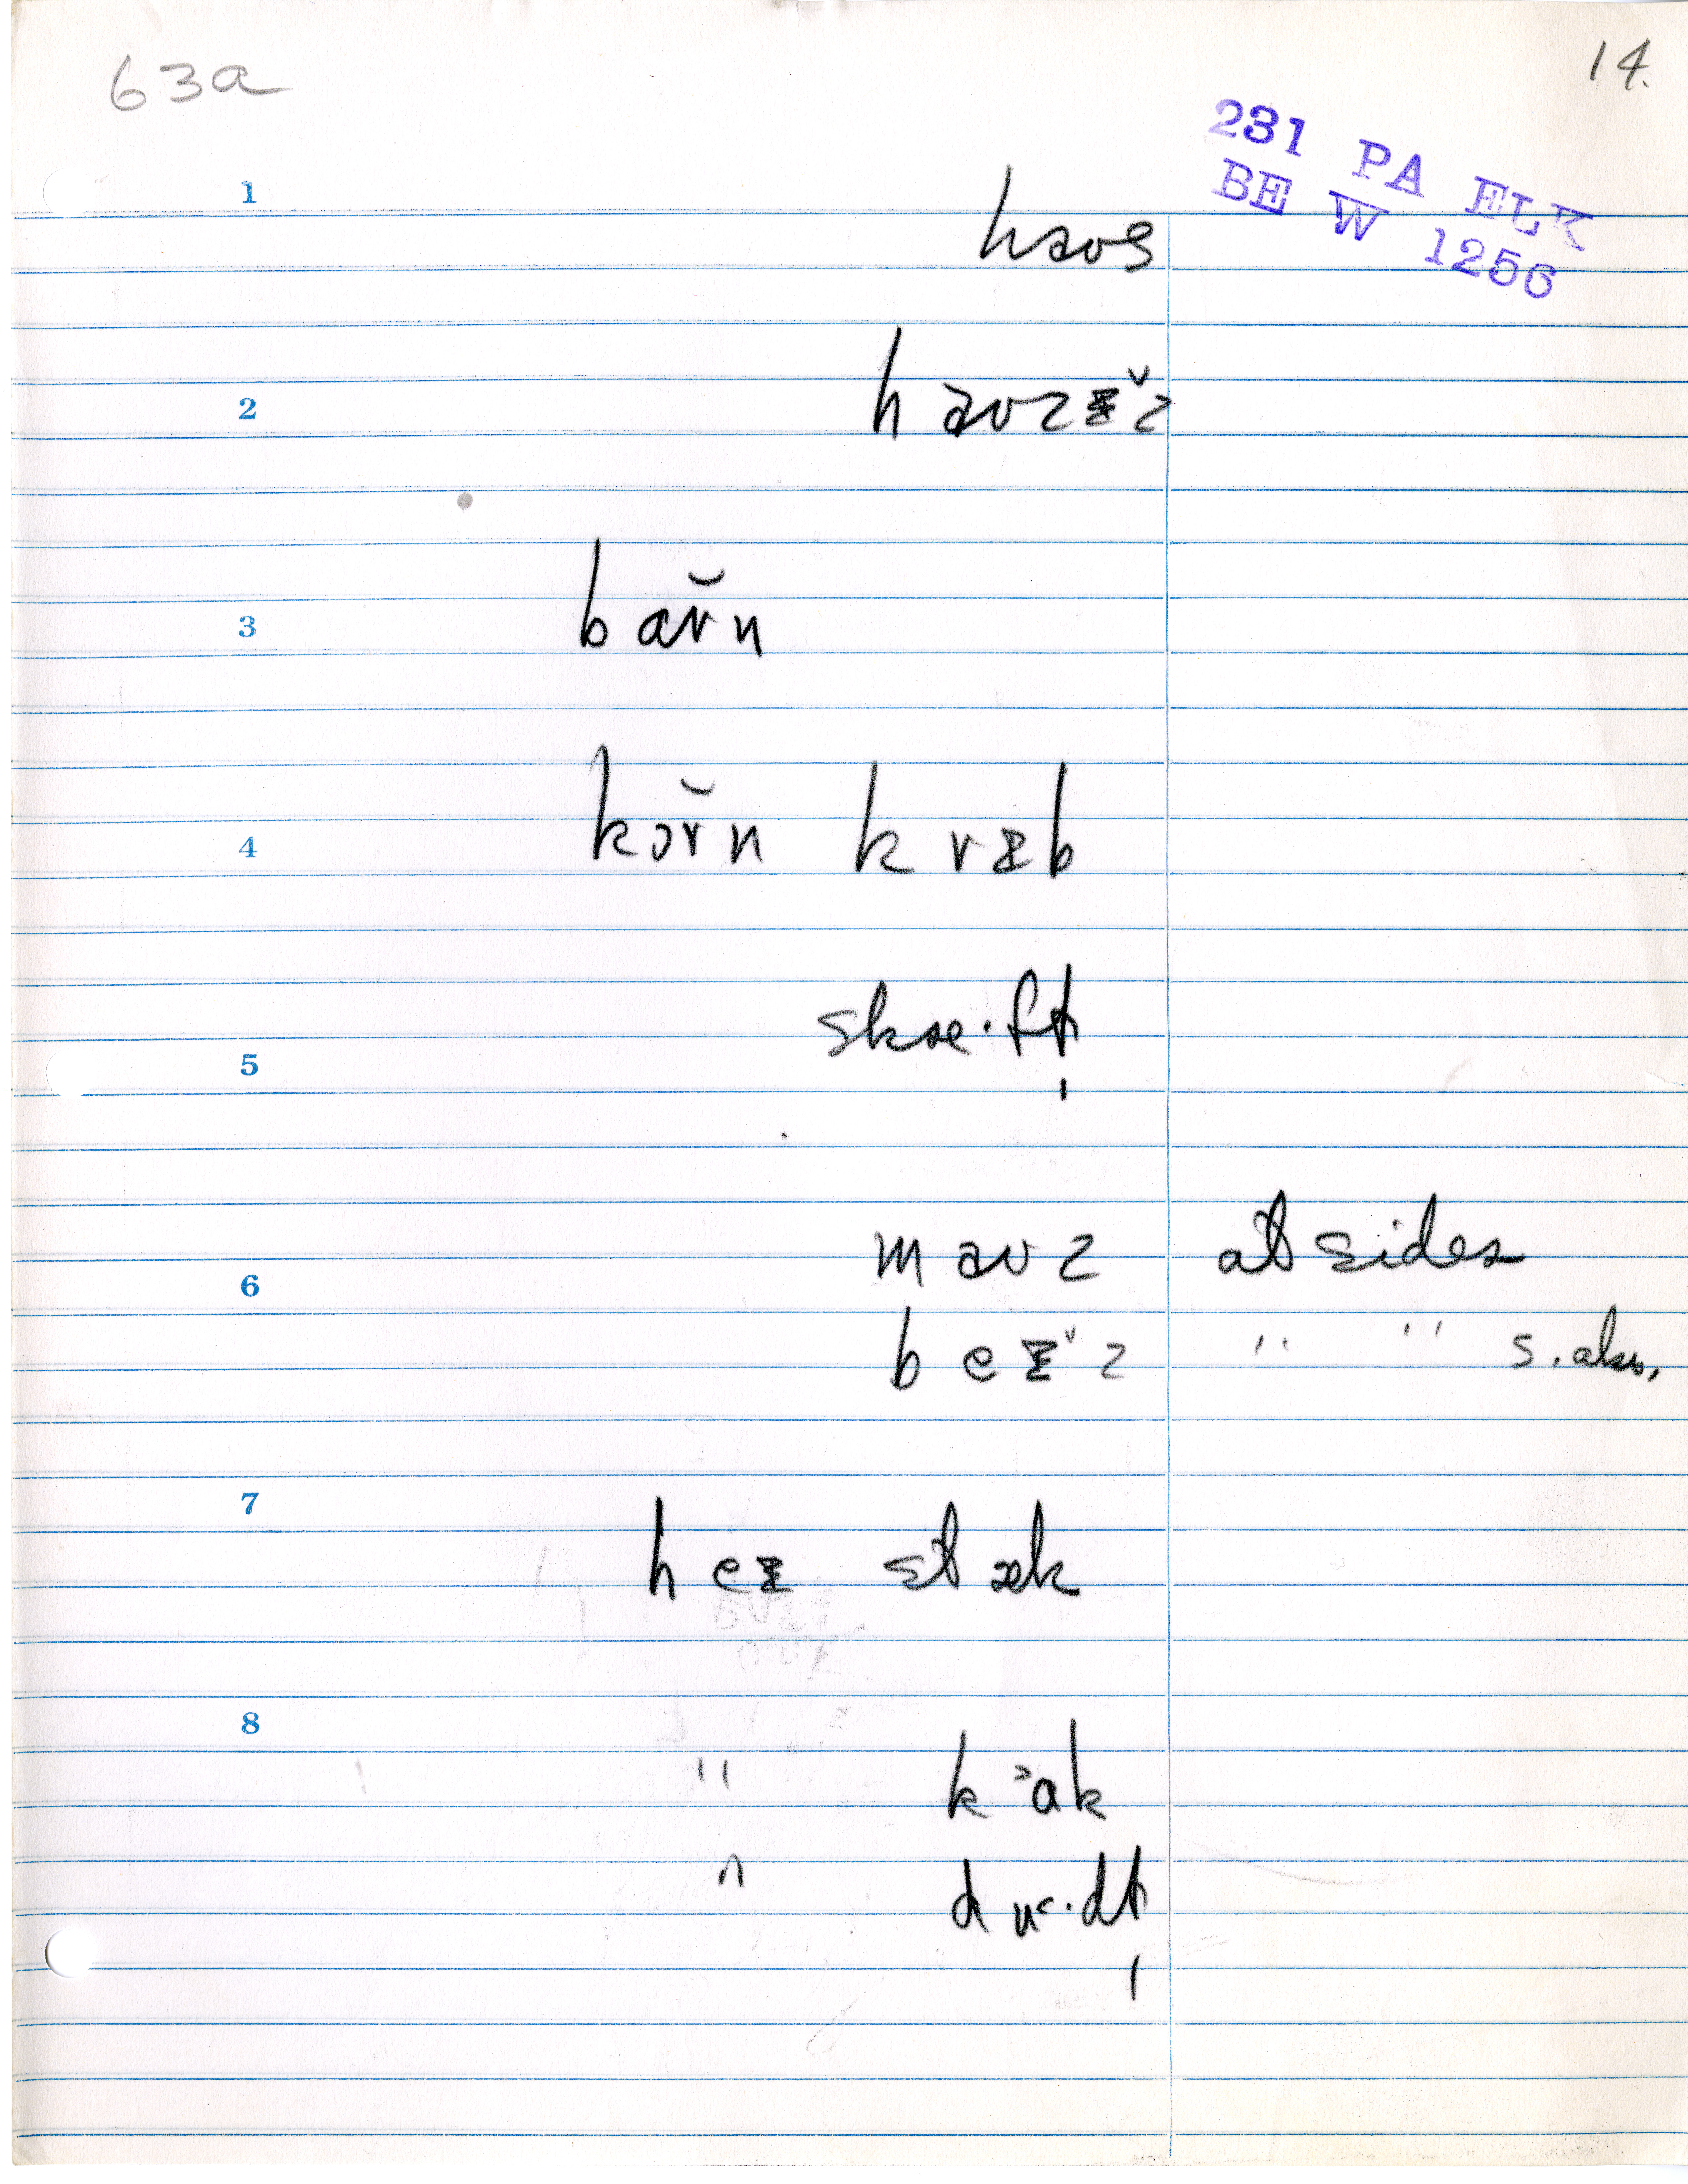 63a
14.
231 PA ELK
BE W 1256
1
haʊs
2
haʊzᵻ̆z
3
bɑr̆n
4
kɔr̆n krᵻb
5
skæ·ft̩
6
maʊz at sides
beᵻ̆z " " s. also,
7
heᵻ stæk
8
" kᵓɑk
"